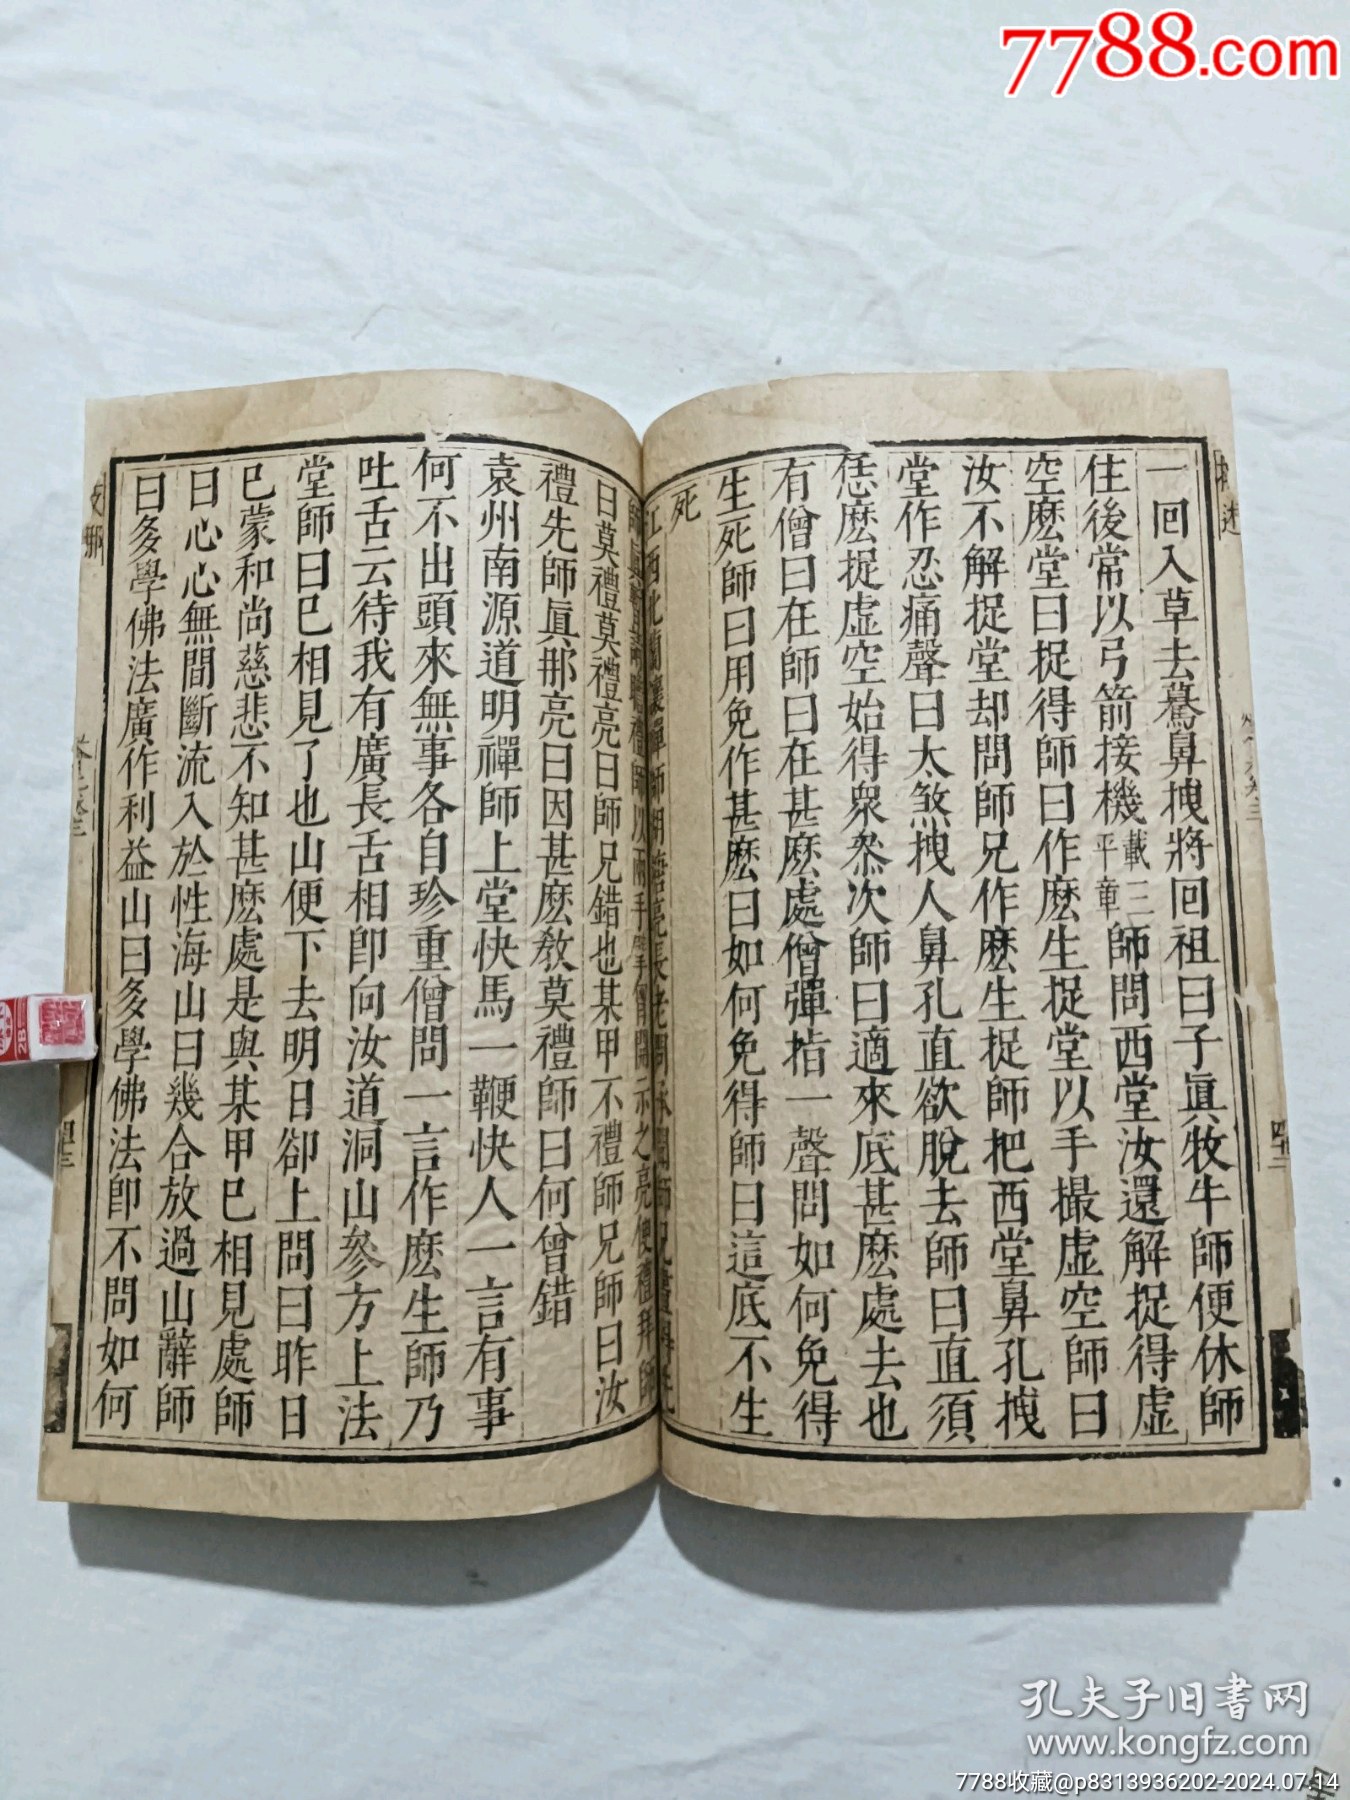 7788.com
一回入草去驀鼻拽將回祖曰子眞牧牛師便休師
住後常以弓箭接機載三平章師問西堂汝還解捉得虛
空麽堂曰捉得師曰作麽生捉堂以手撮虛空師曰
汝不解捉堂却問師兄作麽生捉師把西堂鼻孔拽
堂作忍痛聲曰太煞拽人鼻孔直欲脫去師曰直須
恁麽捉虛空始得衆叅次師曰適來底甚麽處去也
有僧曰在師曰在甚麽處僧彈指一聲問如何免得
生死師曰用免作甚麽曰如何免得師曰這底不生
死
江西北蘭讓禪師湖塘亮長老問
以兩手擘胷開示之亮便禮拜師
曰莫禮莫禮亮曰師兄錯也某甲不禮師兄師曰汝
禮先師眞那亮曰因甚麽敎莫禮師曰何曾錯
袁州南源道明禪師上堂快馬一鞭快人一言有事
何不出頭來無事各自珍重僧問一言作麽生師乃
吐舌云待我有廣長舌相卽向汝道洞山參方上法
堂師曰已相見了也山便下去明日卻上問曰昨日
已蒙和尚慈悲不知甚麽處是與某甲已相見處師
曰心心無間斷流入於性海山曰幾合放過山辭師
曰多學佛法廣作利益山曰多學佛法卽不問如何
孔夫子旧書网
www.kongfz.com
7788收藏@p8313936202-2024.07.14